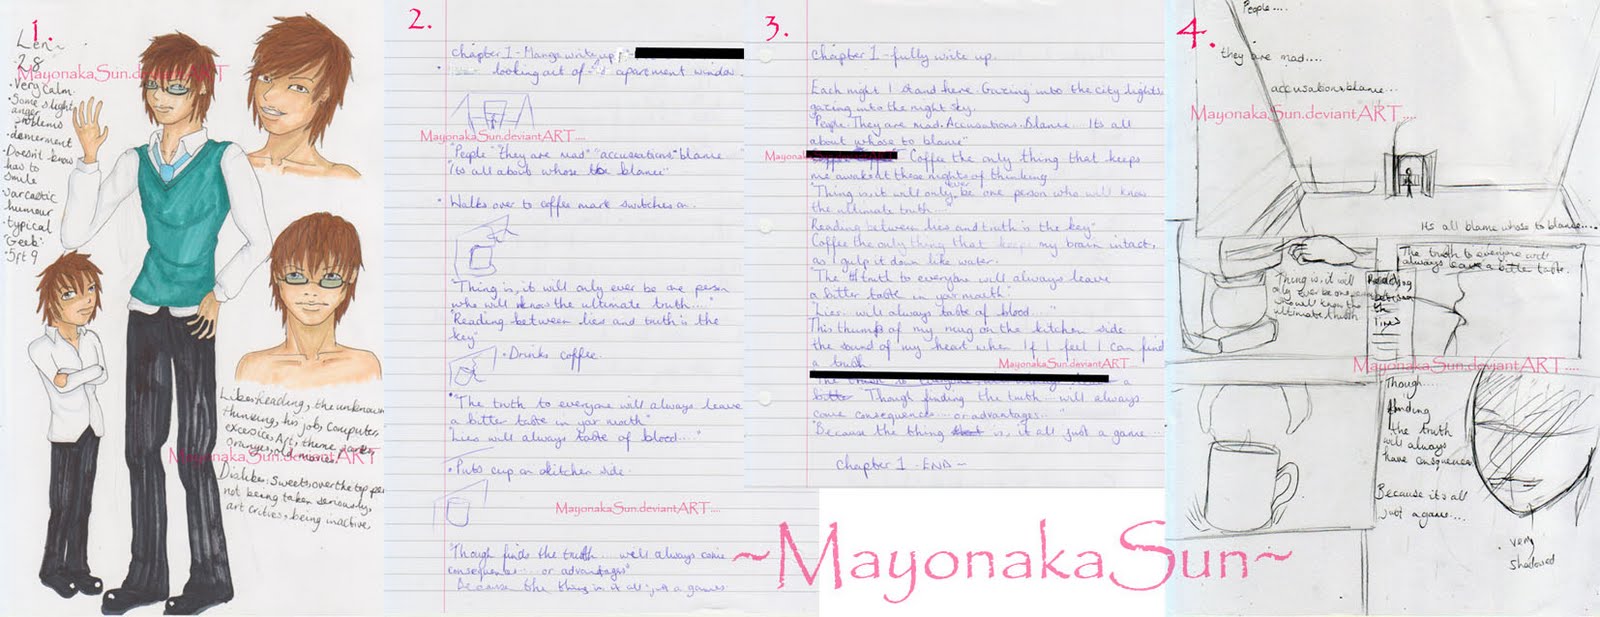 1.
Len~
28
MayonakaSun.deviantART
• Very Calm.
• Some slight
anger
problems
• demerment
• Doesn't know
how to
smile
sarcastic
humour
• typical
"Geek"
• 5ft 9
Likes: Reading, the unknown
thinking, his job, Computers,
Art,
oranges, old movies.
MayonakaSun.deviantART
Dislikes: Sweets, over the top
not being taken seriously,
art critics, being inactive
2.
Chapter 1 - Manga write up
• looking out of apartment window.
MayonakaSun.deviantART....
"People" "they are mad" "accusations" blame
"Its all about whose to blame"
• Walks over to coffee mark switches on.
"Thing is, it will only ever be one person
who will know the ultimate truth...."
"Reading between lies and truth is the
key"
• Drinks coffee.
• "The truth to everyone will always leave
a bitter taste in your mouth"
"Lies will always taste of blood...."
• Puts cup on kitchen side.
MayonakaSun.deviantART....
"Though finds the truth.... will always come
consequences.... or advantages"
Because the thing in it all just a games
3.
Chapter 1 - fully write up.
Each night I stand here. Gazing into the city lights,
gazing into the night sky.
People. They are mad. Accusations. Blame... Its all
about whose to blame"
Mayonaka
Coffee the only thing that keeps
me awake at these nights of thinking
"Thing is, it will only ever be one person who will know
the ultimate truth....
Reading between lies and truth is the key"
Coffee the only thing that keeps my brain intact,
as I gulp it down like water.
"The truth to everyone will always leave
a bitter taste in your mouth"
"Lies.. will always taste of blood...."
This thumps of my mug on the kitchen side
the sound of my heart when If I feel I can find
a truth.
MayonakaSun.deviantART....
a
bitter "Though finding the truth... will always
come consequences.... or advantages..."
"Because the thing is, it all just a game...
Chapter 1 - END ~
~MayonakaSun~
4.
People....
they are mad....
accusations, blame...
MayonakaSun.deviantART....
Its all blame whose to blame....
Thing is, it will
only ever be one person
who will know the
ultimate truth
Reading
between
the
lies
The truth to everyone will
always leave a bitter taste.
MayonakaSun.deviantART....
Though....
finding
the truth
will always
have consquences.
Because it's all
just a game....
• very
shadowed